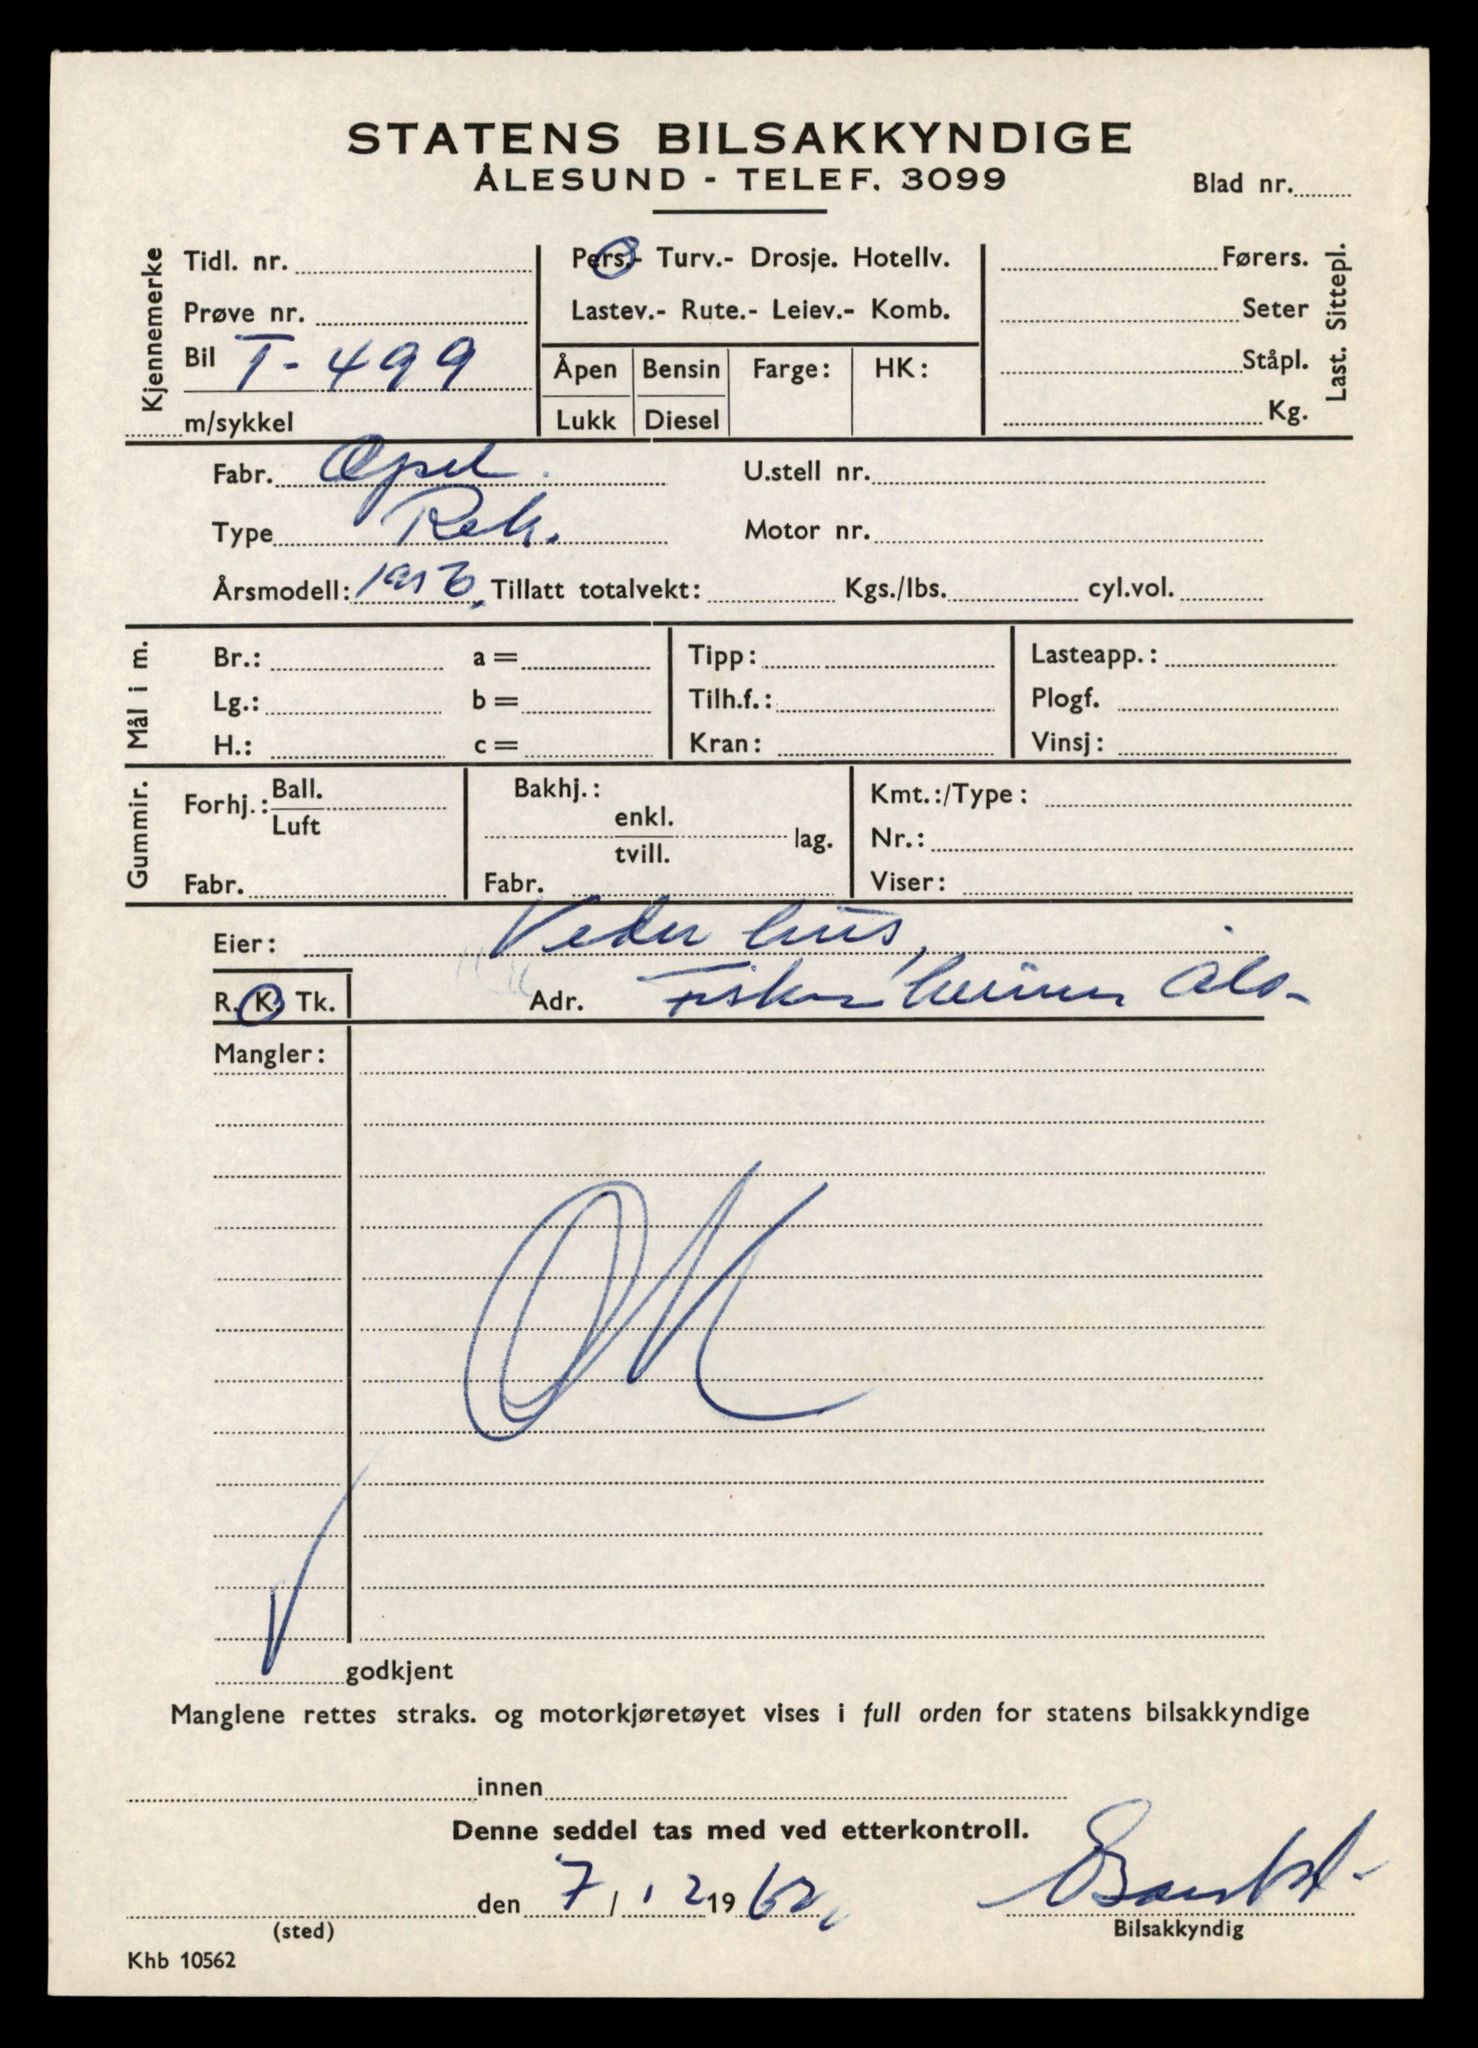 STATENS BILSAKKYNDIGE
ÅLESUND - TELEF. 3099
Blad nr.
Kjennemerke
Tidl. nr.
Prøve nr.
Bil T-499
m/sykkel
Pers.- Turv.- Drosje. Hotellv.
Lastev.- Rute.- Leiev.- Komb.
Åpen Bensin Farge: HK:
Lukk Diesel
Førers.
Seter
Ståpl.
Kg.
Last. Sittepl.
Fabr. Opel U.stell nr.
Type Rek. Motor nr.
Årsmodell: 1956. Tillatt totalvekt: Kgs./lbs. cyl.vol.
Mål i m.
Br.: a = Tipp: Lasteapp.:
Lg.: b = Tilh.f.: Plogf.
H.: c = Kran: Vinsj:
Gummir.
Forhj.: Ball.
Luft
Fabr.
Bakhj.:
enkl.
tvill. lag.
Fabr.
Kmt.:/Type:
Nr.:
Viser:
Eier:
R. K. Tk. Adr.
Mangler:
OK
godkjent
Manglene rettes straks. og motorkjøretøyet vises i full orden for statens bilsakkyndige
innen
Denne seddel tas med ved etterkontroll.
den 7/12 1962
(sted) Bilsakkyndig
Khb 10562